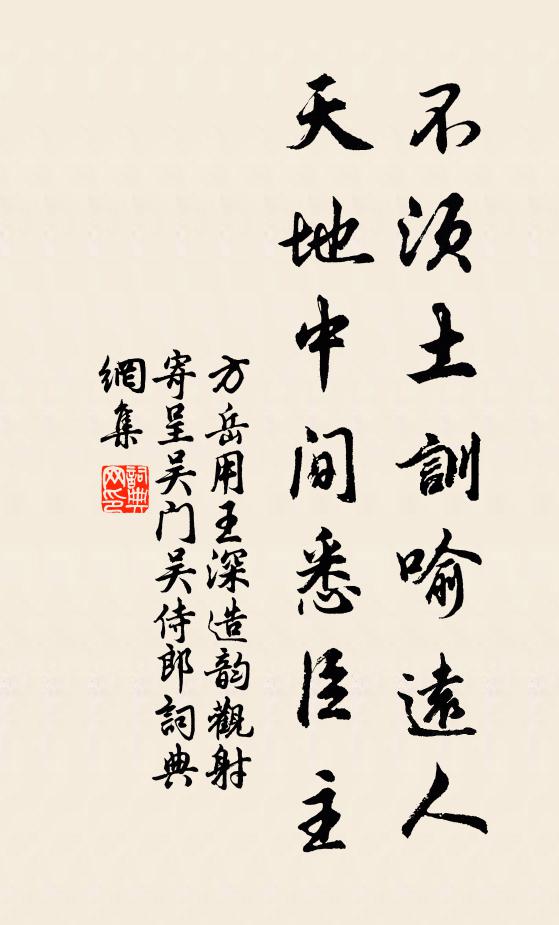 不須土訓喻遠人
天地中間悉臣主
方岳用王深造韵觀射
寄呈吴门吴侍郎詞典
網集
詞典
网印